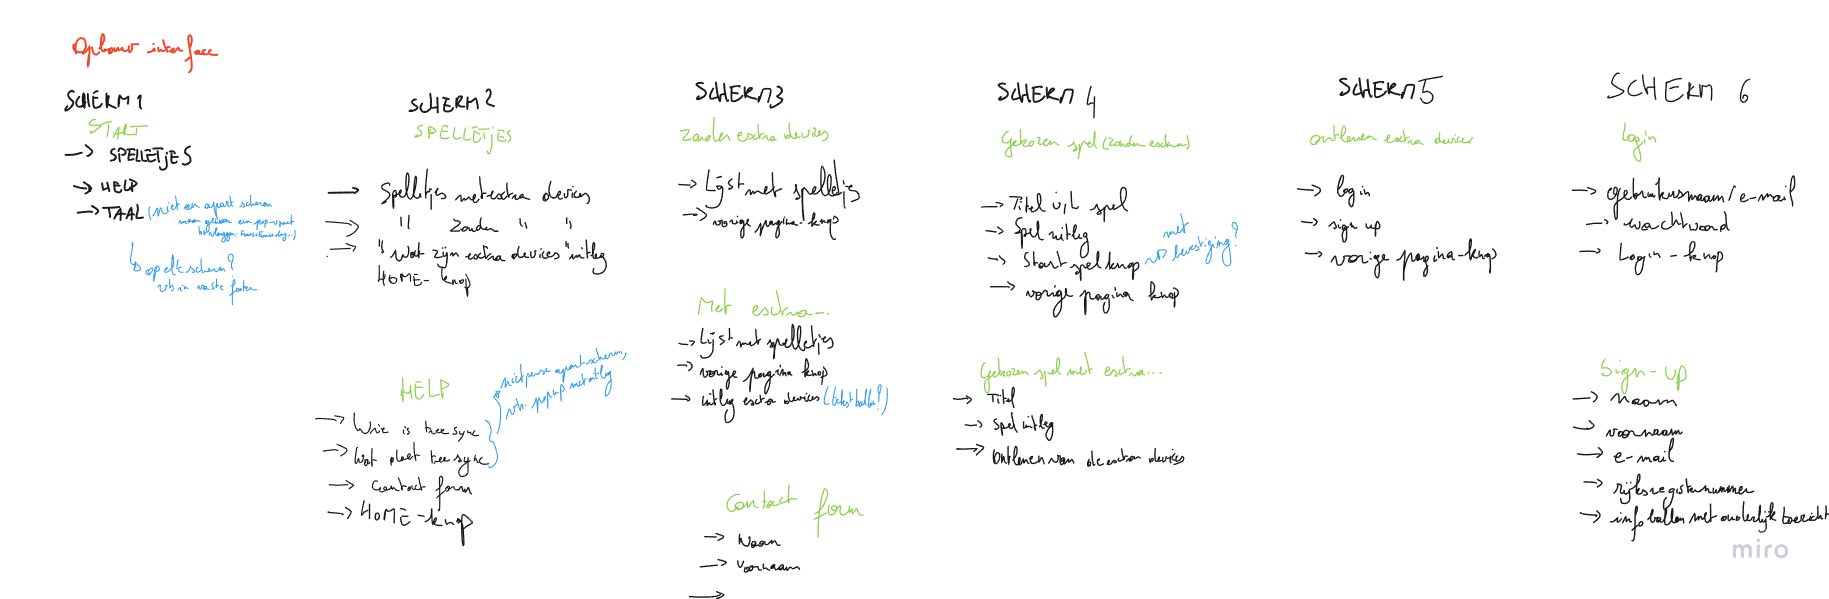 Opbouw interface
SCHERM 1
START
→ SPELLETJES
→ HELP
→ TAAL (niet een apart scherm
maar gewoon een pop-up met
↳ op elk scherm?
vb in vaste footer
SCHERM 2
SPELLETJES
→ Spelletjes met extra devices
→ " Zonder " "
→ "Wat zijn extra devices" uitleg
HOME-knop
HELP
→ Wie is tree sync
→ Wat doet tree sync
niet perse apart scherm,
vb. pop up met uitleg
→ Contact form
→ HOME-knop
SCHERM 3
Zonder extra devices
→ Lijst met spelletjes
→ vorige pagina-knop
Met extra...
→ Lijst met spelletjes
→ vorige pagina knop
→ uitleg extra devices (tekstballon?)
Contact form
→ Naam
→ Voornaam
→
SCHERM 4
Gekozen spel (zonder extra)
→ Titel v/h spel
→ Spel uitleg
→ Start spel knop
met
vb bevestiging?
→ vorige pagina knop
Gekozen spel met extra...
→ Titel
→ Spel uitleg
→ Ontlenen van de extra devices
SCHERM 5
ontlenen extra devices
→ log in
→ sign up
→ vorige pagina-knop
SCHERM 6
Login
→ gebruikersnaam/e-mail
→ wachtwoord
→ Login-knop
Sign-up
→ naam
→ voornaam
→ e-mail
→ rijksregisternummer
→ info ballon met ouderlijk toezicht
miro